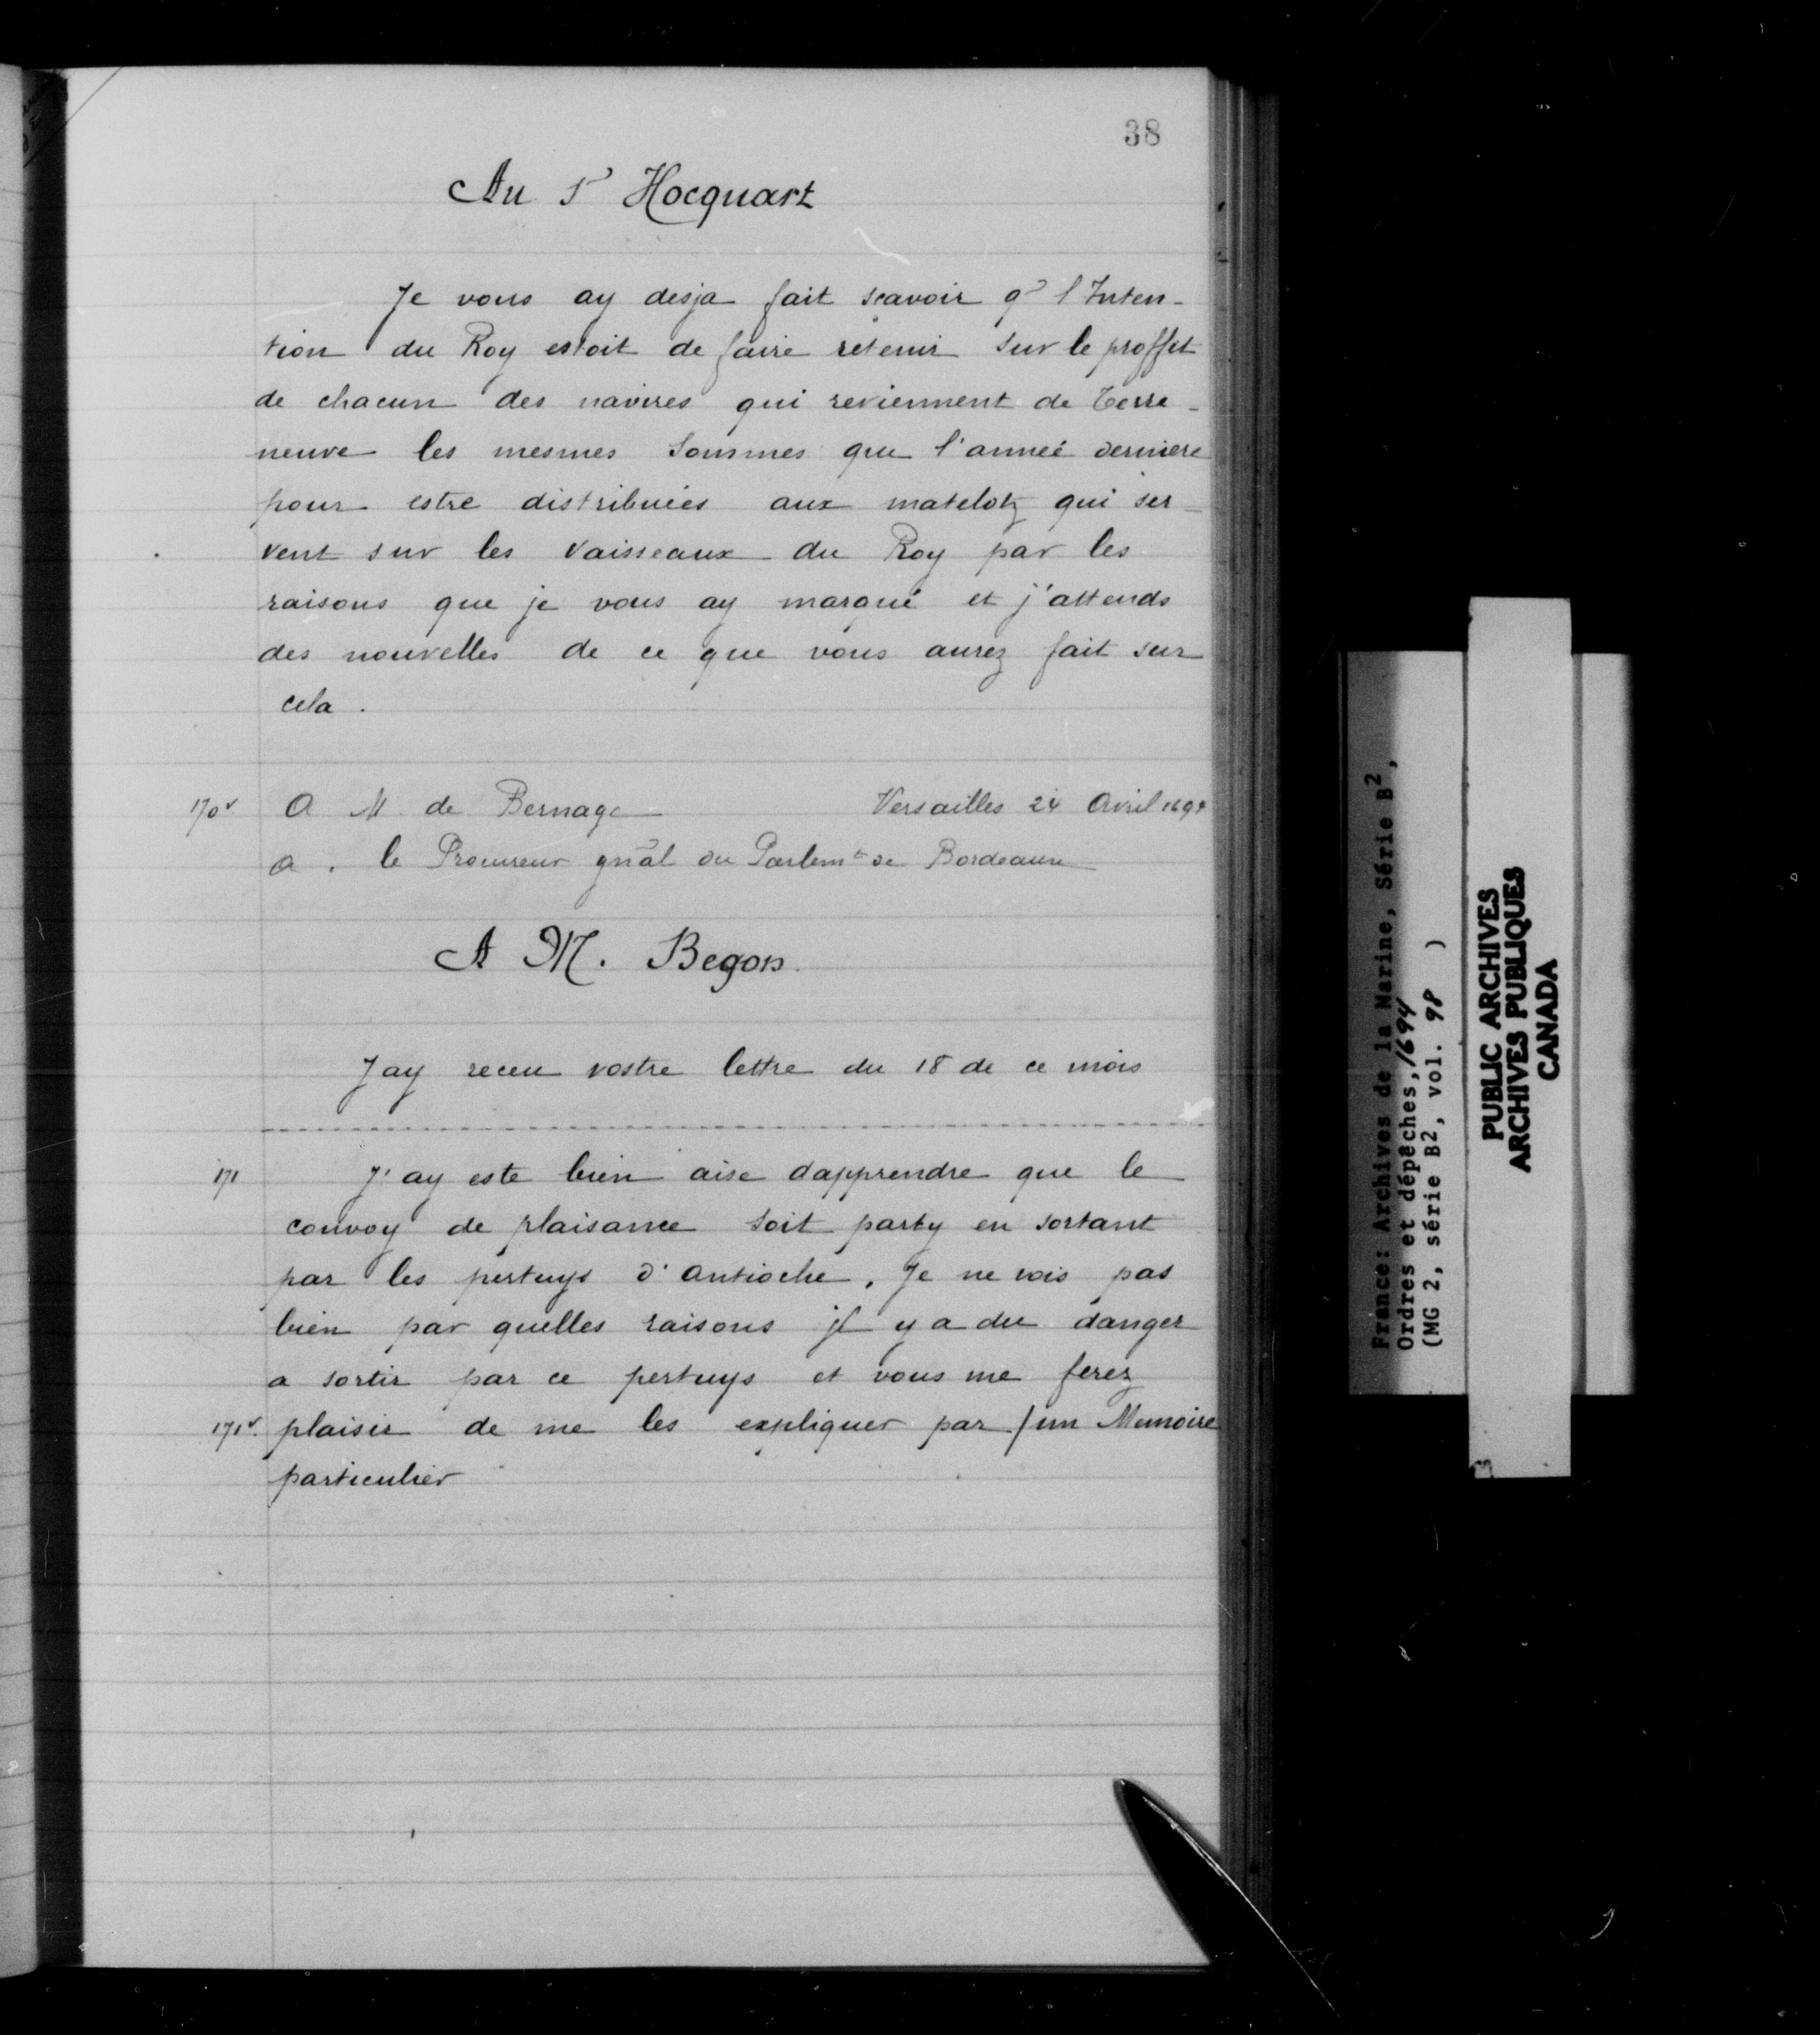 38
Au Sr Hocquart
Je vous ay desja fait scavoir q̃ l'Inten-
tion du Roy estoit de faire retenir sur le proffit
de chacun des navires qui reviennent de Terre-
neuve les mesmes sommes que l'année derniere
pour estre distribuées aux matelotz qui ser-
vent sur les vaisseaux du Roy par les
raisons que je vous ay marqué et j'attends
des nouvelles de ce que vous aurez fait sur
cela.
170v A M de Bernage Versailles 24 Avril 1694
a . le Procureur gñal du Parlemt de Bordeaux
A M. Begon
Jay receu vostre lettre du 18 de ce mois
171 J'ay este bien aise dapprendre que le
convoy de plaisance soit party en sortant
par les pertuys d'antioche. Je ne vois pas
bien par quelles raisons jl y a du danger
a sortir par ce pertuys et vous me ferez
171v. plaisir de me les expliquer par / un Memoire
particulier
France: Archives de la Marine, Série B2,
Ordres et dépêches, 1694
(MG 2, série B2, vol. 98 )
PUBLIC ARCHIVES
ARCHIVES PUBLIQUES
CANADA